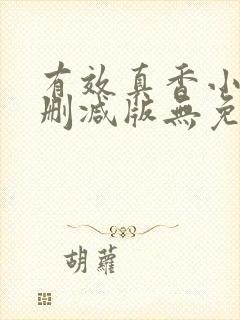 有效真香小
删减版無免
胡蘿